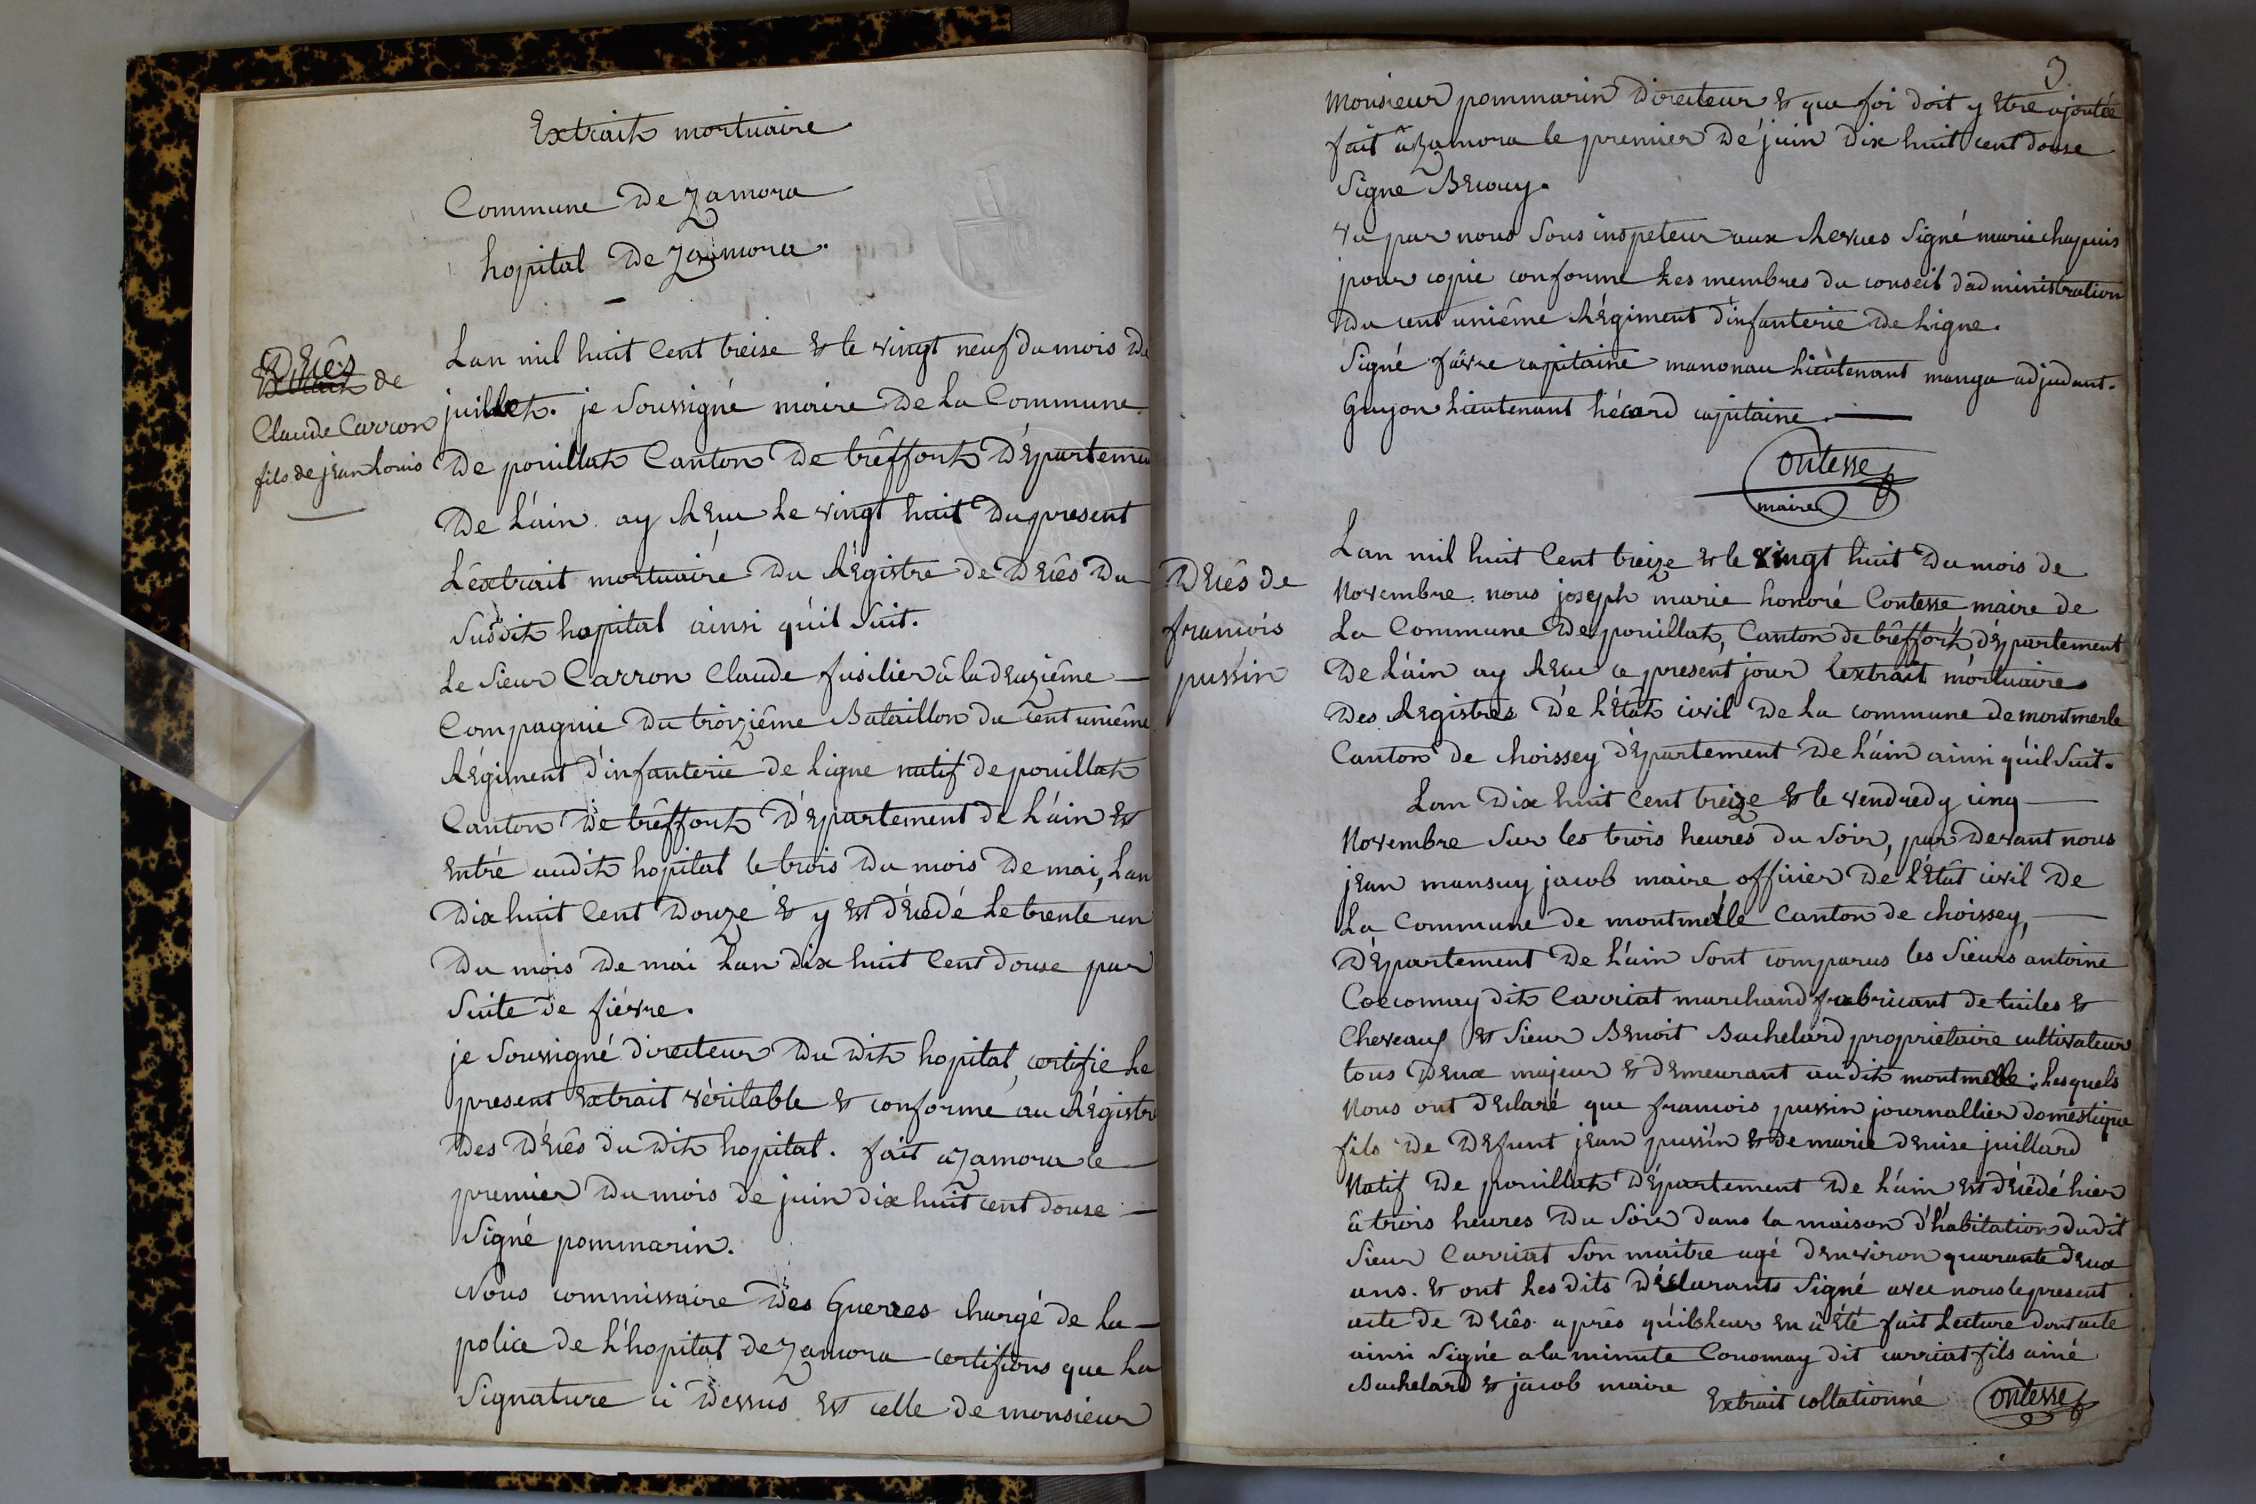 Extrait mortuaire
Commune de Zamora
hopital de Zamora.
Décès
de
Claude Carron
fils de jean Louis
Lan mil huit Cent treise et le vingt neuf du mois de
juillet. je soussigné maire de la Commune
de pouillat Canton de trêffort Département
de L'ain ay Reçu le vingt huit du present
L'éxtrait mortuaire du Régistre de Décès du
Susdit hopital ainsi qu'il suit.
Le sieur Carron Claude fusilier â la deuzième
Compagnie du troizième Bataillon du Cent unième
Régiment d'infanterie de Ligne natif de pouillat
Canton de trêffort Département de L'ain est
entré audit hopital le trois du mois de mai, Lan
dix huit Cent Douze et y est décédé Le trente un
du mois de mai Lan dix huit Cent douse par
Suite de fiévre.
je soussigné directeur du dit hopital, certifie Le
present extrait véritable et conforme au Régistre
des Décès du dit hopital. fait a Zamora le
premier du mois de juin dix huit cent douse
Signé pommarin.
Nous commissaire des Guerres chargé de La
police de L'hopital de Zamora certifions que La
Signature ci dessus est celle de monsieur
3
Monsieur pommarin Directeur et que foi doit y etre ajoutée
fait â Zamora le premier de juin dix huit cent douse
Signé Brouy.
Vu par nous sous inspeteur aux Revues Signé marie chapuis
pour copie conforme Les membres du conseil d'administration
du cent unième Régiment d'infanterie de Ligne.
Signé faivre capitaine manonau Lieutenant manga adjudant.
Guyon Lieutenant hécard capitaine
Contesse
maire
Décès de
francois
pussin
Lan mil huit Cent treize et le vingt huit du mois de
Novembre. nous joseph marie honoré Contesse maire de
La Commune de pouillat, Canton de trêffort département
de L'ain ay Reçu ce present jour L'extrait mortuaire
des Registres de L'état civil de La commune de montmerle
Canton de thoissey département de L'ain ainsi qu'il Suit.
Lan dix huit Cent treize et le vendredy cinq
Novembre Sur les trois heures du Soir, par devant nous
jean mansuy jacob maire officier de L'état civil de
La Commune de montmerle Canton de thoissey,
Département de L'ain sont comparus les Sieurs antoine
Cocomay dit Carriat marchand fabricant de tuiles et
Cheveaux et sieur Benoit Bachelard propriétaire cultivateur
tous deux majeur et demeurant audit montmerle. Lesquels
Nous ont déclaré que francois pussin journallier domestique
fils de defunt jean pussin et de marie denise juillard
Natif de pouillat Département de L'ain est décédé hier
â trois heures du soir dans la maison d'habitation dudit
Sieur Carriat Son maitre agé d'environ quarante deux
ans. et ont Lesdits déclarants Signé avec nous le present
acte de décès après qu'il Leur en â été fait Lecture dont acte
ainsi Signé a la minute Cocomay dit carriat fils ainé
Bachelard et jacob maire
Extrait collationné
Contesse